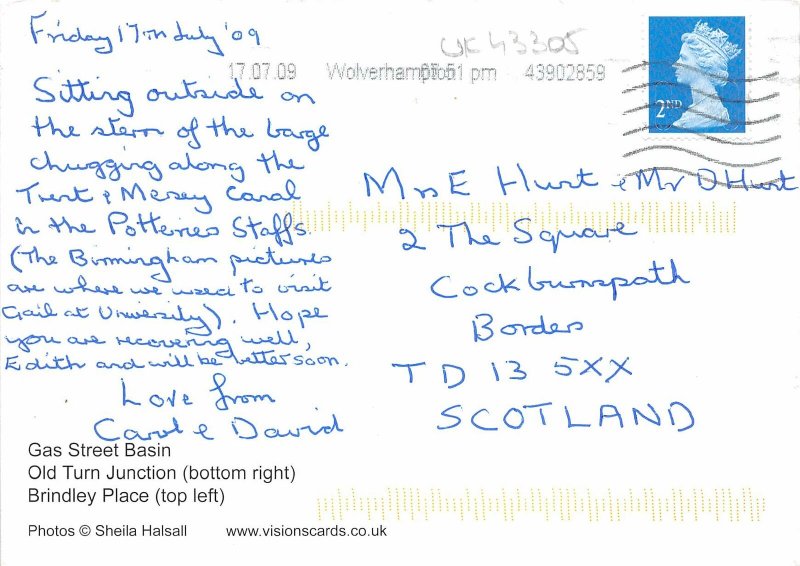 Friday 17TH July '09
UK43305
17.07.09 Wolverhampton 05:51 pm 43902859
2ND
Sitting outside on
the stern of the barge
chugging along the
Trent & Mersey Canal
in the Potteries Staffs.
(The Birmingham pictures
are where we used to visit
Gail at University). Hope
you are recovering well,
Edith and will be better soon.
Love from
Carol & David
Mrs E Hunt & Mr D Hunt
2 The Square
Cockburnspath
Borders
TD 13 5XX
SCOTLAND
Gas Street Basin
Old Turn Junction (bottom right)
Brindley Place (top left)
Photos © Sheila Halsall www.visionscards.co.uk